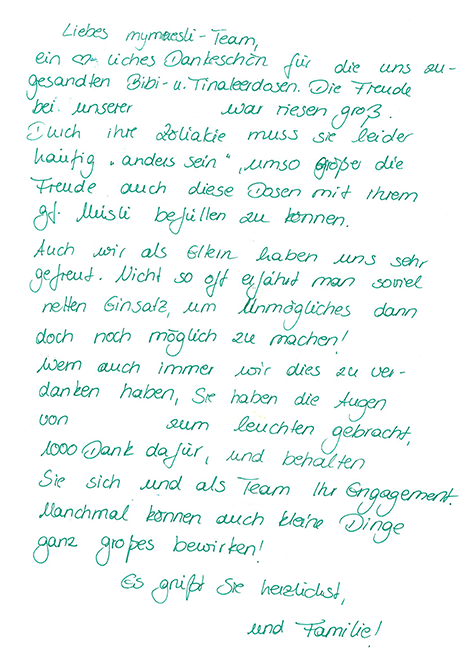 Liebes mymuesli-Team,
ein ♡-liches Dankeschön für die uns zu-
gesandten Bibi- u. Tinaleerdosen. Die Freude
bei unserer war riesen groß.
Durch ihre Zöliakie muss sie leider
häufig „anders sein", umso größer die
Freude auch diese Dosen mit Ihrem
gf. Müsli befüllen zu können.
Auch wir als Eltern haben uns sehr
gefreut. Nicht so oft erfährt man soviel
netten Einsatz, um Unmögliches dann
doch noch möglich zu machen!
Wem auch immer wir dies zu ver-
danken haben, Sie haben die Augen
von zum leuchten gebracht,
1000 Dank dafür, und behalten
Sie sich und als Team Ihr Engagement.
Manchmal können auch kleine Dinge
ganz großes bewirken!
Es grüßt Sie herzlichst,
und Familie!